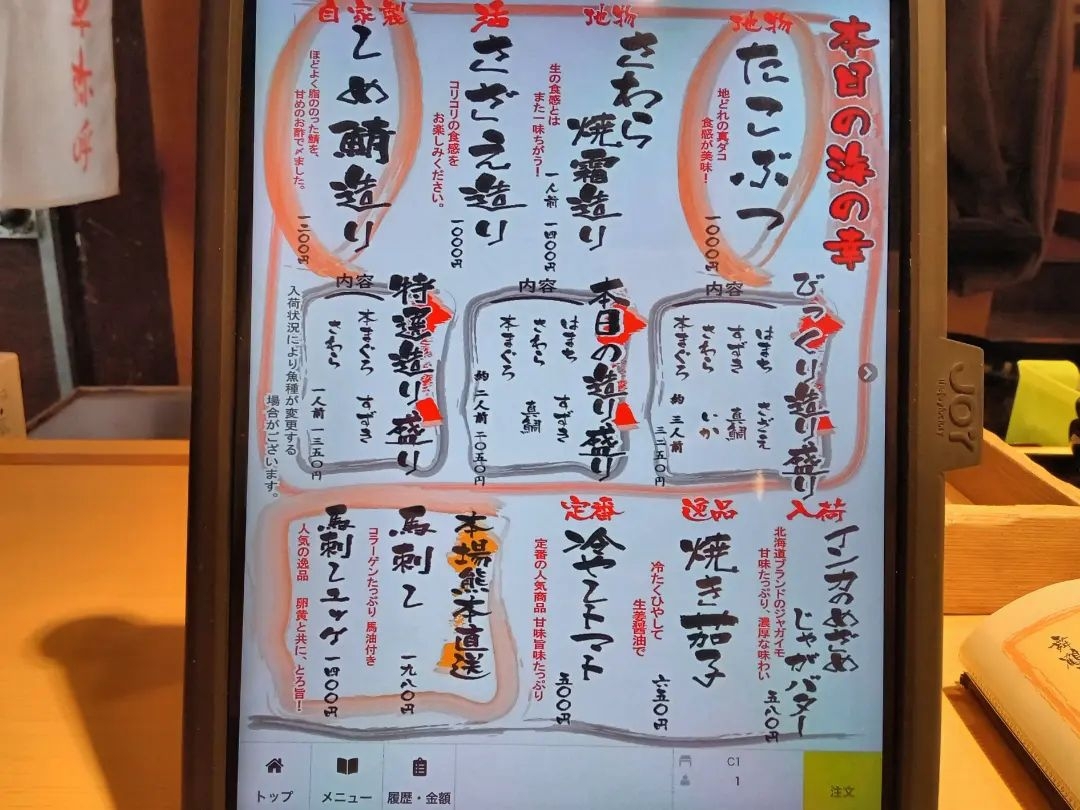 本日の海の幸
地物
たこぶつ
地どれの真ダコ
食感が美味！
一〇〇〇円
地物
さわら
焼霜造り
生の食感とは
また一味ちがう！
一人前 一四〇〇円
活
さざえ造り
コリコリの食感を
お楽しみください。
一〇〇〇円
自家製
しめ鯖造り
ほどよく脂ののった鯖を、
甘めのお酢で〆ました。
一二〇〇円
びっくり造り盛り
内容
はまち さざえ
すずき 真鯛
さわら いか
本まぐろ
約 三人前
三二五〇円
本日の造り盛り
内容
はまち すずき
さわら 真鯛
本まぐろ
約 二人前 二〇五〇円
特選造り盛り
内容
本まぐろ すずき
さわら
一人前 一三五〇円
入荷状況により魚種が変更する
場合がございます。
入荷
インカのめざめ
じゃがバター
北海道ブランドのジャガイモ
甘味たっぷり、濃厚な味わい
五八〇円
逸品
焼き茄子
冷たくひやして
生姜醤油で
六五〇円
定番
冷やしトマト
定番の人気商品 甘味旨味たっぷり
五〇〇円
本場熊本直送
馬刺し
コラーゲンたっぷり 馬油付き
一九八〇円
馬刺しユッケ
人気の逸品 卵黄と共に、とろ旨！
一四〇〇円
トップ
メニュー
履歴・金額
C1
1
注文
JOY